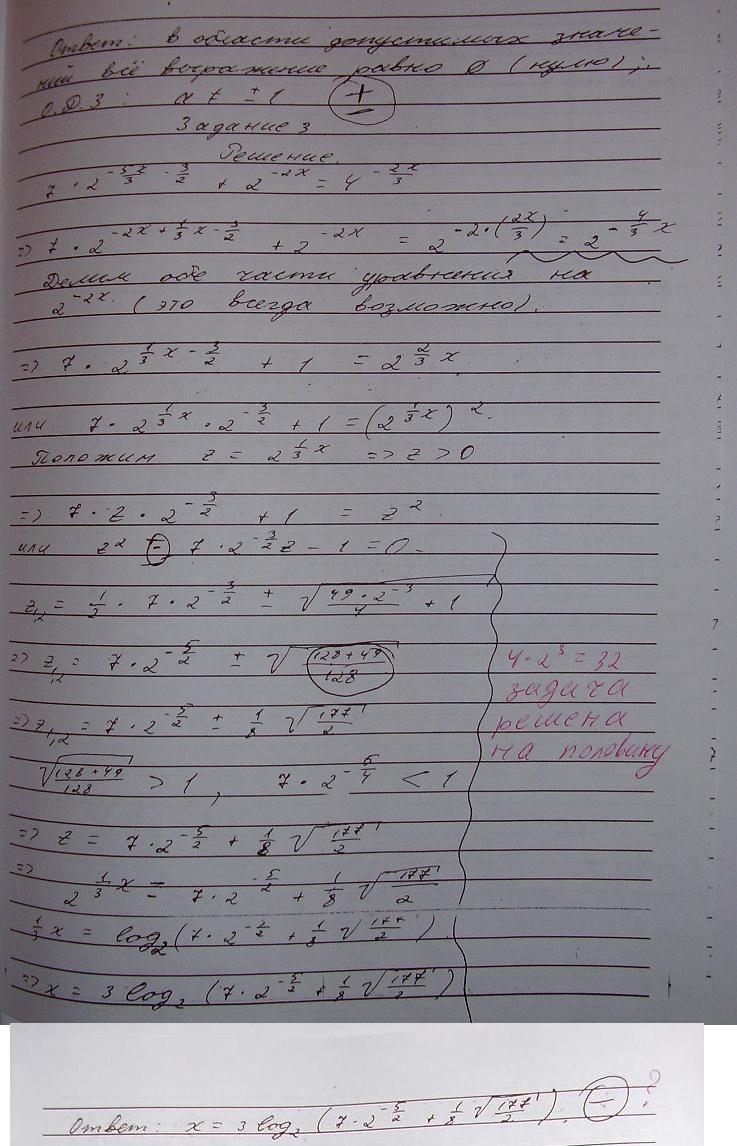 Ответ: в области допустимых значе-
ний всё выражение равно 0 (нулю);
О.Д.З: a ≠ ±1 +
Задание 3
Решение.
7 · 2^{-5x/3 - 3/2} + 2^{-2x} = 4^{-2x/3}
=> 7 · 2^{-2x + 1/3 x - 3/2} + 2^{-2x} = 2^{-2·(2x/3)} = 2^{-4/3 x}
Делим обе части уравнения на
2^{-2x} (это всегда возможно).
=> 7 · 2^{1/3 x - 3/2} + 1 = 2^{2/3 x}.
или 7 · 2^{1/3 x} · 2^{-3/2} + 1 = (2^{1/3 x})^2.
Положим z = 2^{1/3 x} => z > 0
=> 7 · z · 2^{-3/2} + 1 = z^2.
или z^2 - 7 · 2^{-3/2} z - 1 = 0.
z_{1,2} = 1/2 · 7 · 2^{-3/2} ± √(49 · 2^{-3}/4 + 1)
=> z_{1,2} = 7 · 2^{-5/2} ± √((128+49)/128)
4 · 2^3 = 32
задача
решена
на половину
=> z_{1,2} = 7 · 2^{-5/2} ± 1/8 √(177/2)
√((128+49)/128) > 1, 7 · 2^{-5/4} < 1
=> z = 7 · 2^{-5/2} + 1/8 √(177/2)
=> 2^{1/3 x} = 7 · 2^{-5/2} + 1/8 √(177/2)
1/3 x = log_2 (7 · 2^{-5/2} + 1/8 √(177/2))
=> x = 3 log_2 (7 · 2^{-5/2} + 1/8 √(177/2))
Ответ: x = 3 log_2 (7 · 2^{-5/2} + 1/8 √(177/2)). - ?